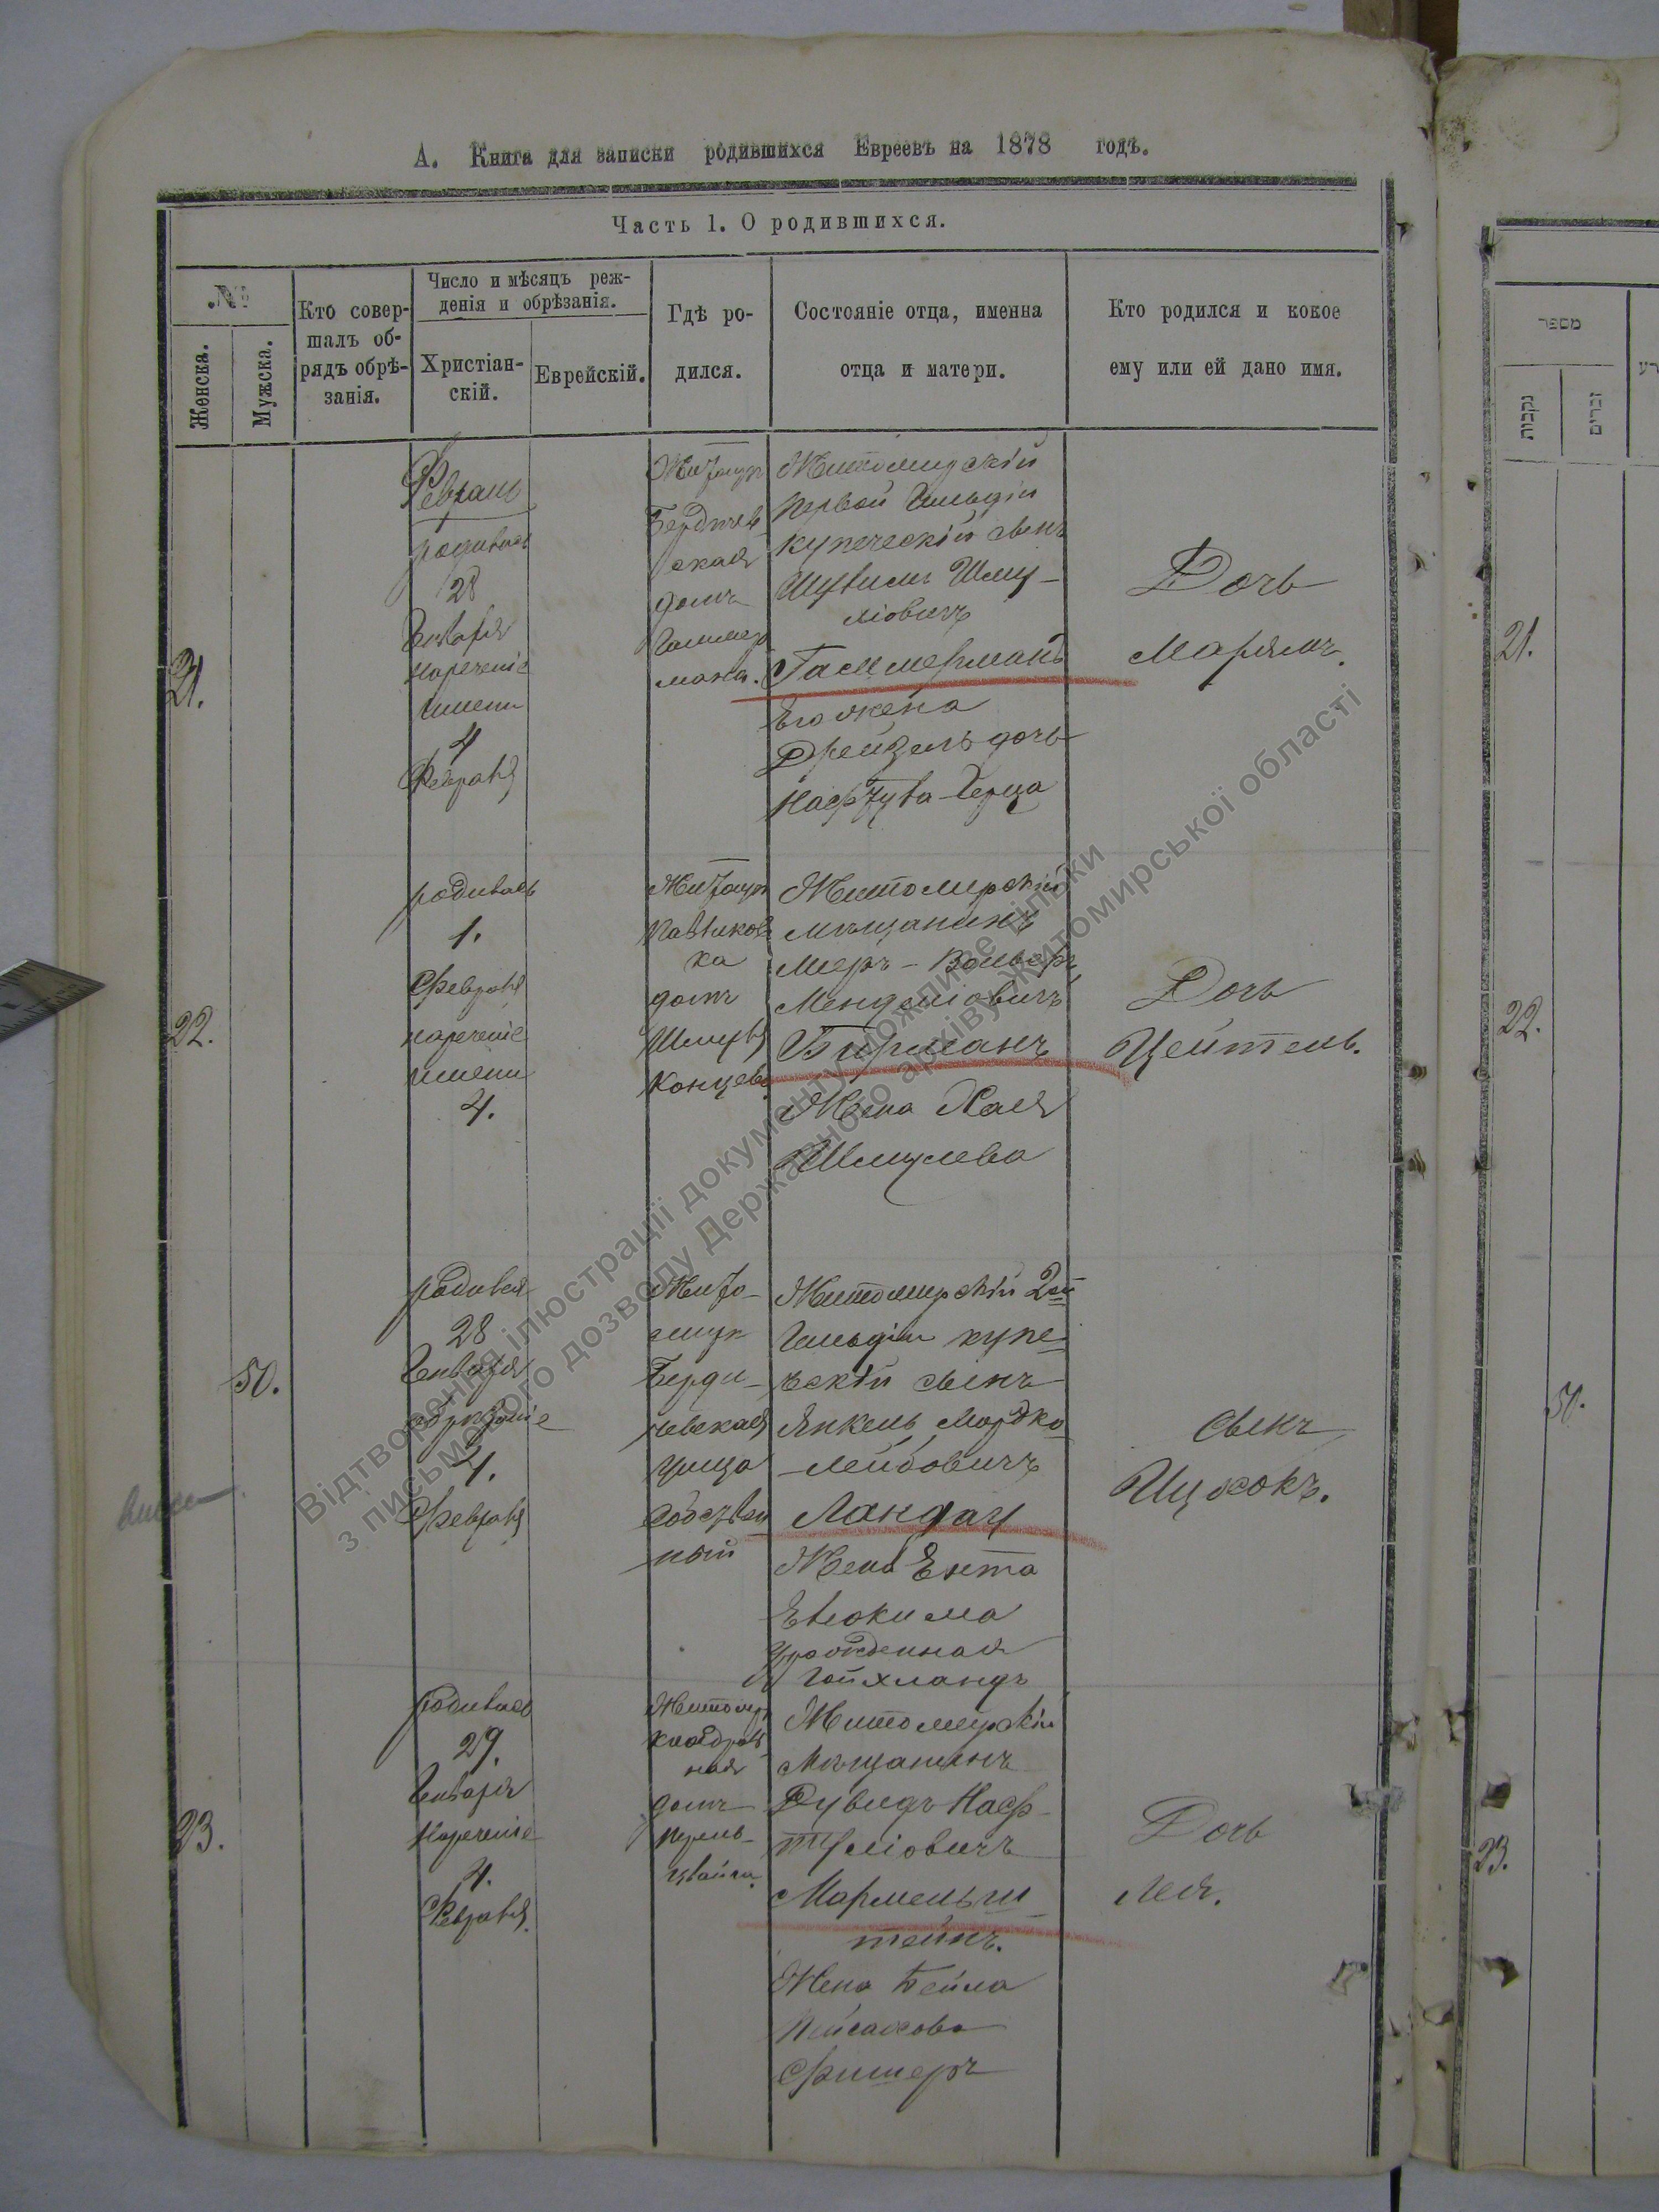 А. Книга для записки родившихся Евреевъ на 1878 годъ.
Часть 1. О родившихся.
№
Женска.
Мужска.
Кто совер-
шалъ об-
рядъ обрѣ-
занія.
Число и мѣсяцъ реж-
денія и обрѣзанія.
Христіан-
скій.
Еврейскій.
Гдѣ ро-
дился.
Состояніе отца, именна
отца и матери.
Кто родился и кокое
ему или ей дано имя.
21.
Февраль
родилась
28
Генваря
нареченіе
имени
4
Февраля
Бердичев
ская
домъ
Гаммер
мана.
Житомирскій
Первой Гильдіи
купеческій сынъ
Шму-
ліовичъ
Гаммерманъ
Его жена
Дрейзель дочь
Нафтула-Герца
Дочь
Марьямъ.
22.
родилась
1.
Февраля
нареченіе
имени
4.
Павликов
ка
домъ
Шмуля
Концева
Житомирскій
мѣщанинъ
Мееръ-Вольфъ
Менделіовичъ
Бирманъ
Жена Хая
Шмулева
Дочь
Цейтель.
50.
родился
28
Генваря
обрѣзаніе
4.
Февраля
Жито-
миръ
Берди-
чевская
улица
собствен
ный
Житомирскій 2ой
Гильдіи купе-
ческій сынъ
Янкель Мордко
-Лейбовичъ
Ландау
Жена Ента
Евтокима
Урожденная
Гойхландъ
Сынъ
Ицхокъ.
23.
родилась
29.
Генваря
Нареченіе
4.
Февраля.
Житомир
Кафедраль
ная
домъ
Перель-
цвайга.
Житомирскій
Мѣщанинъ
Дувидъ Наф-
туліовичъ
Мармельш-
тейнъ.
Жена Бейла
Пейсахова
Фишеръ
Дочь
Лея.
מספר
נקבות
זכרים
21.
22.
50.
23.
Відтворення ілюстрації документу можливе тільки
з письмового дозволу Державного архіву Житомирської області